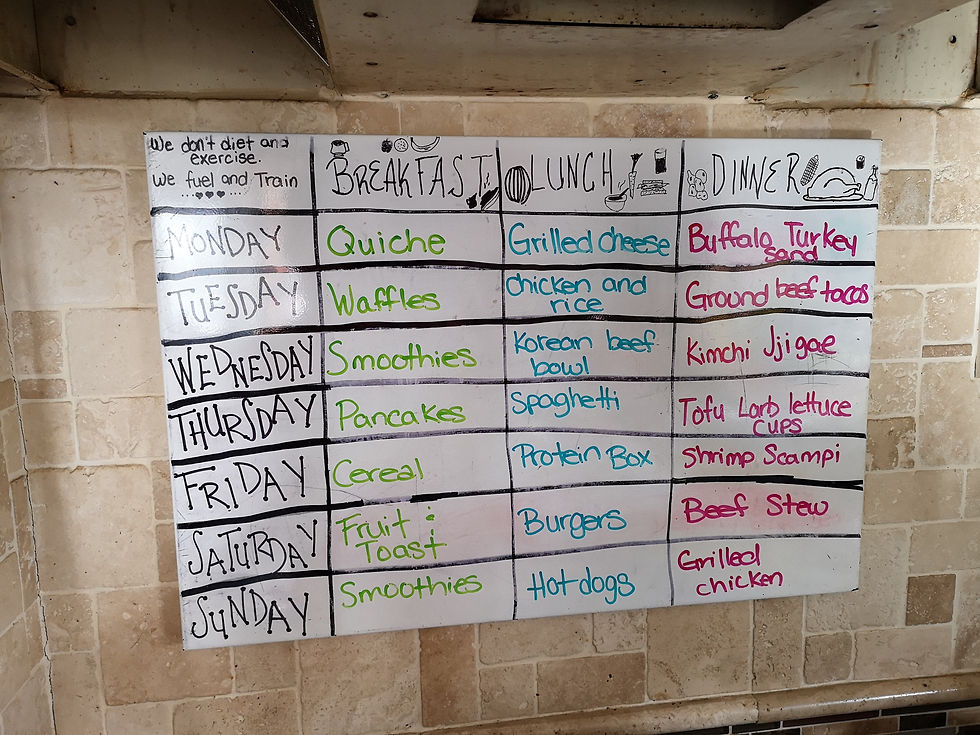 We don't diet and
exercise.
We fuel and Train
BREAKFAST LUNCH DINNER
MONDAY Quiche Grilled cheese Buffalo Turkey
sand
TUESDAY Waffles chicken and
rice Ground beef tacos
WEDNESDAY Smoothies Korean beef
bowl Kimchi Jjigae
THURSDAY Pancakes Spaghetti Tofu Larb lettuce
cups
FRIDAY Cereal Protein Box Shrimp Scampi
SATURDAY Fruit &
Toast Burgers Beef Stew
SUNDAY Smoothies Hotdogs Grilled
chicken